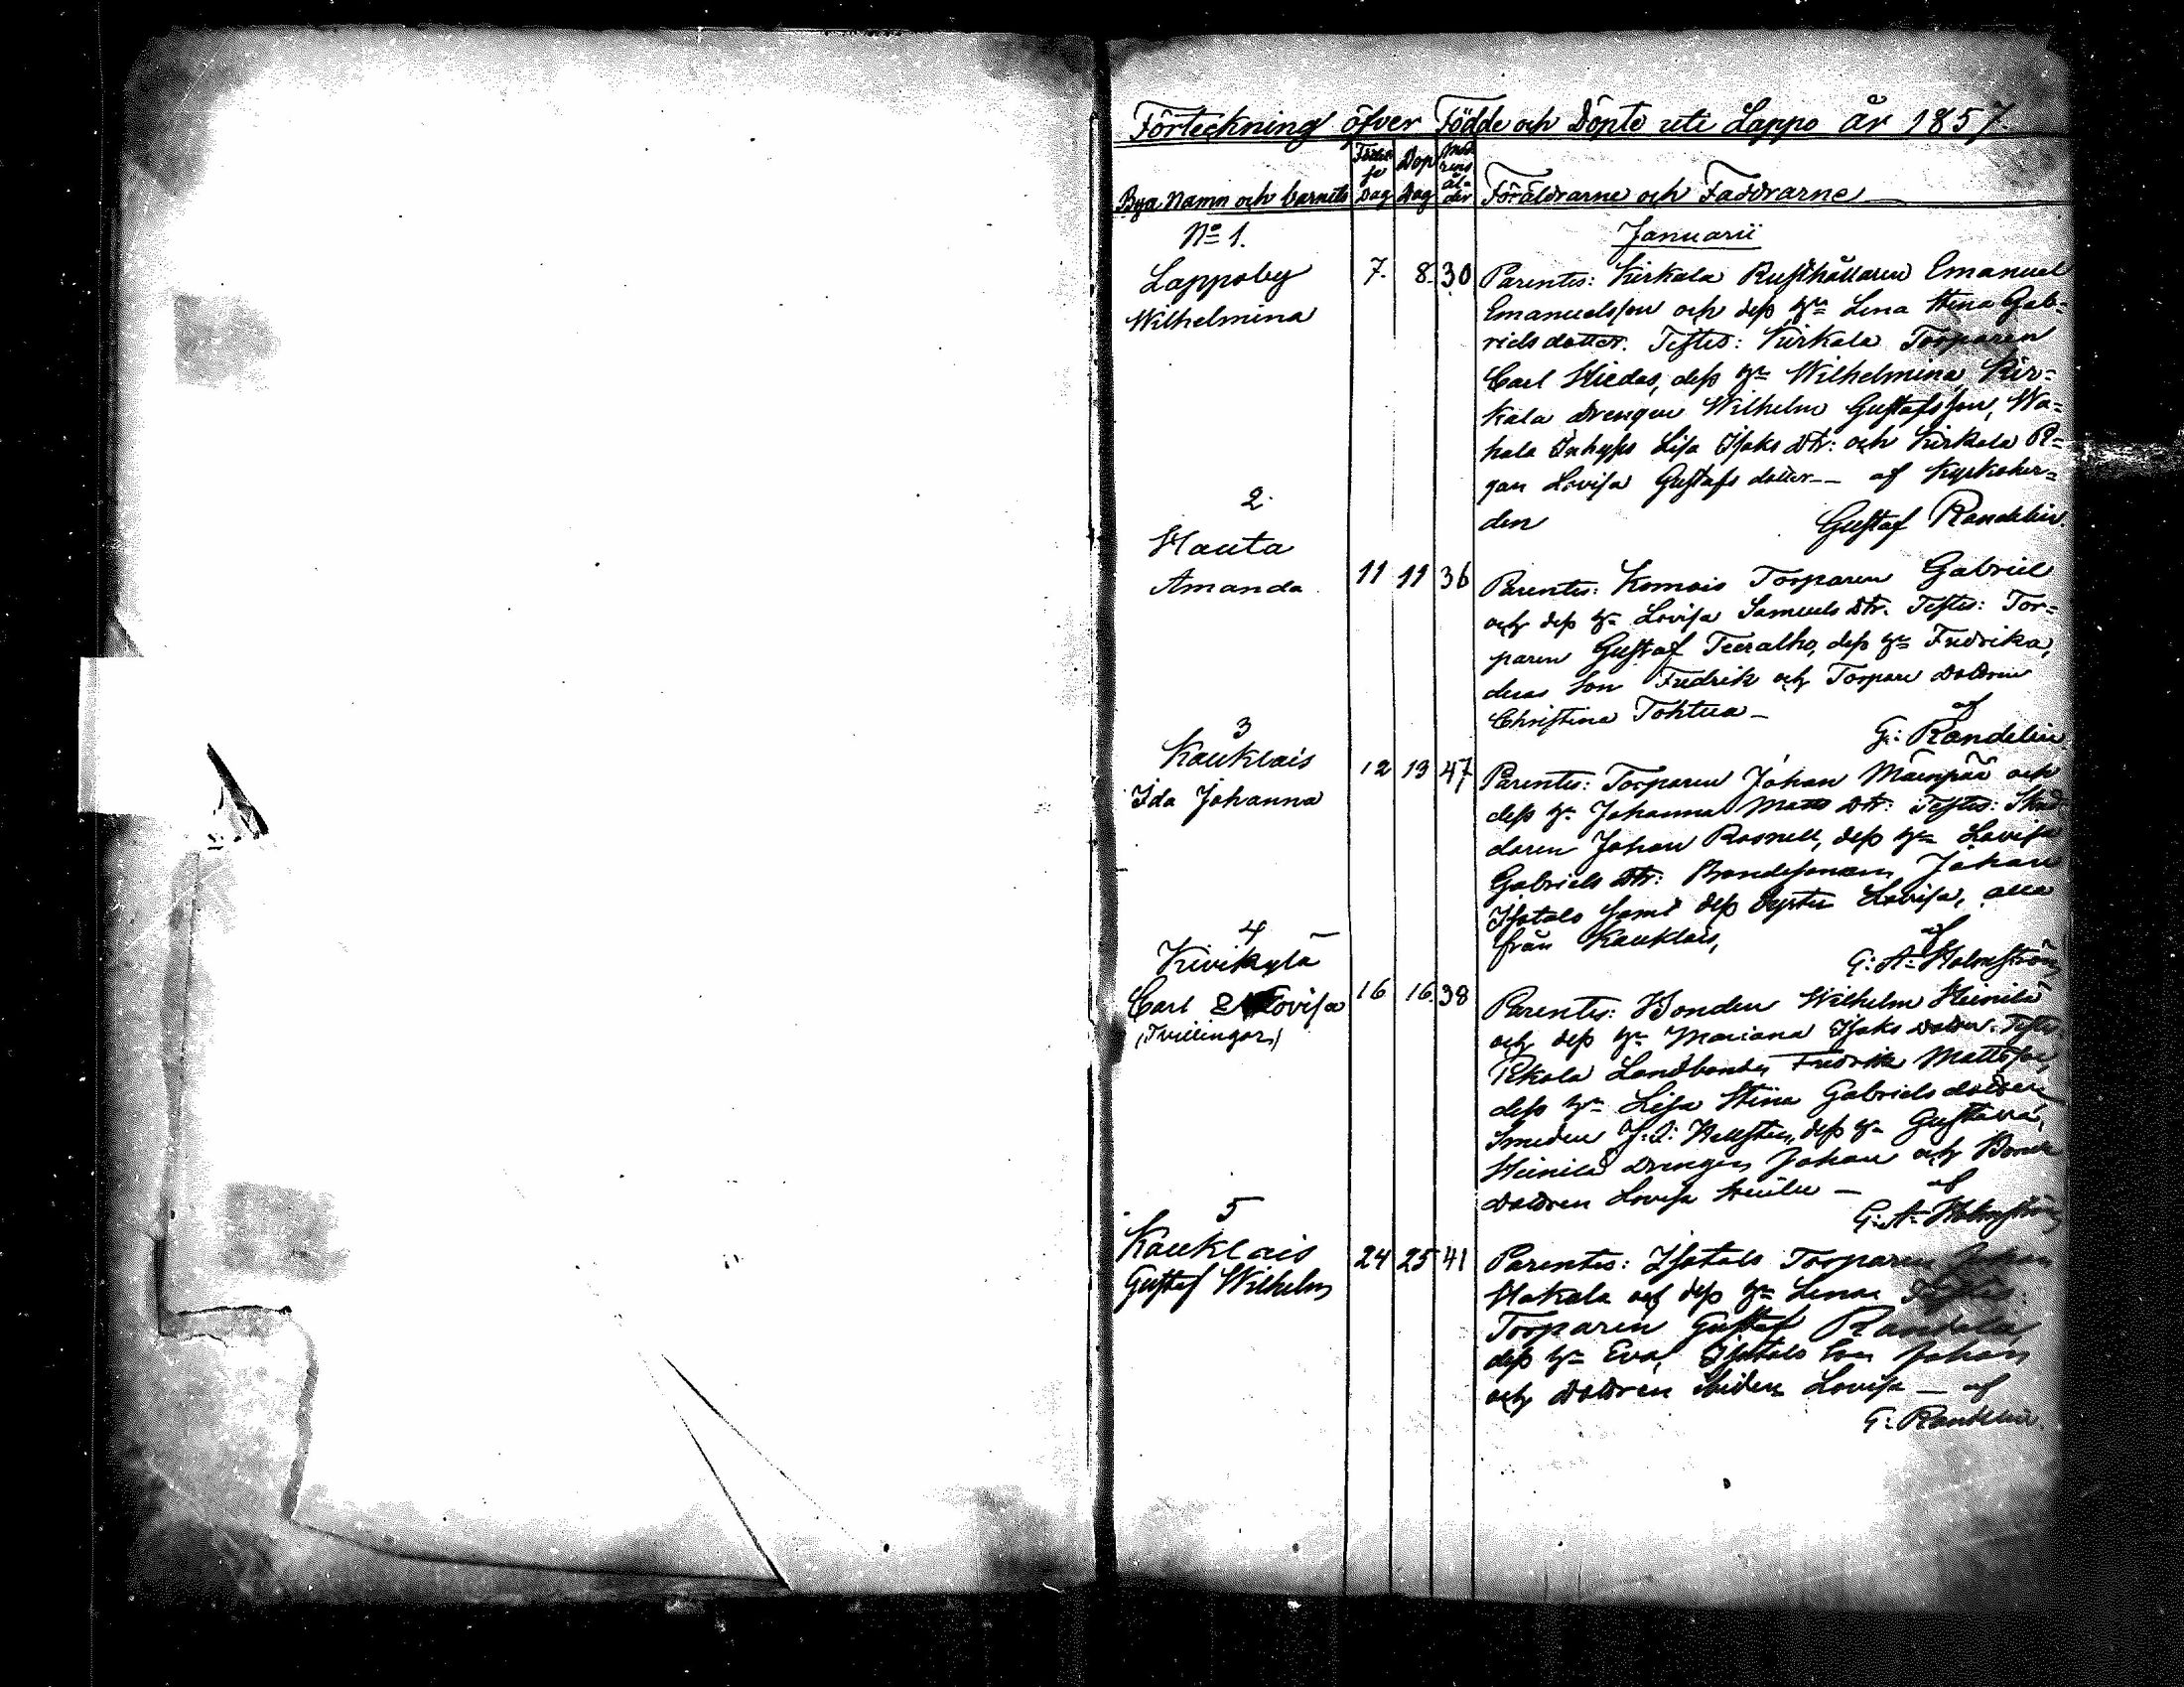 Förteckning öfver Födde och Döpte uti Lappo år 1857.
Bya Namn och barnets
Födelse Dag
Dop Dag
Modrens ålder
Föräldrarne och Faddrarne
Januarii
No 1.
Lappoby 7. 8. 30
Wilhelmina
Parentes: Kirkala Rusthållaren Emanuel
Emanuelsson och dess hu Lena Stina Gab=
rielsdotter. Testes: Kirkala Torparen
Carl Hiedas, dess hu Wilhelmina, Kir=
kala Drengen Wilhelm Gustafsson, Wa=
hala Inhyses Lisa Isaks Dtr: och Kirkala P=
gan Lovisa Gustafs dotter — af Kyrkoher=
den Gustaf Randelin.
2.
Hauta
Amanda 11 11 36
Parentes: Komois Torparen Gabriel
och dess hu Lovisa Samuels Dtr. Testes: Tor=
paren Gustaf Teeralho, dess hu Fredrika,
deras Son Fredrik och Torpare Dottren
Christina Tohtua — af
G: Randelin
3
Kauklais 12 13 47
Ida Johanna
Parentes: Torparen Johan Mäenpää och
dess hu Johanna Matts Dtr: Testes: Skräd
daren Johan Rosnell, dess hu Lovisa
Gabriels Dtr: Bondesonen Johan
Isotalo samt dess Syster Lovisa, alla
från Kauklais, af
G: A: Holmström
4
Kivikylä
Carl & Lovisa 16 16. 38
(Tvillingar)
Parentes: Bonden Wilhelm Heinilä
och dess hu Mariana Isaks Dotter. Testes
Pekola Landbonden Fredrik Mattsson,
dess hu Lisa Stina Gabriels dotter
Smeden J: Hellsten, dess hu Gustava,
Heinilä Drengen Johan och Bonde
Dottren Lovisa — af
G: A: Holmström
5
Kauklais 24 25 41
Gustaf Wilhelm
Parentes: Isotalo Torparen Johan
Hakala och dess hu Lena Testes
Torparen Gustaf Randala,
dess hu Eva, Isotalo Son Johan
och Dottren Lovisa — af
G: Randelin.